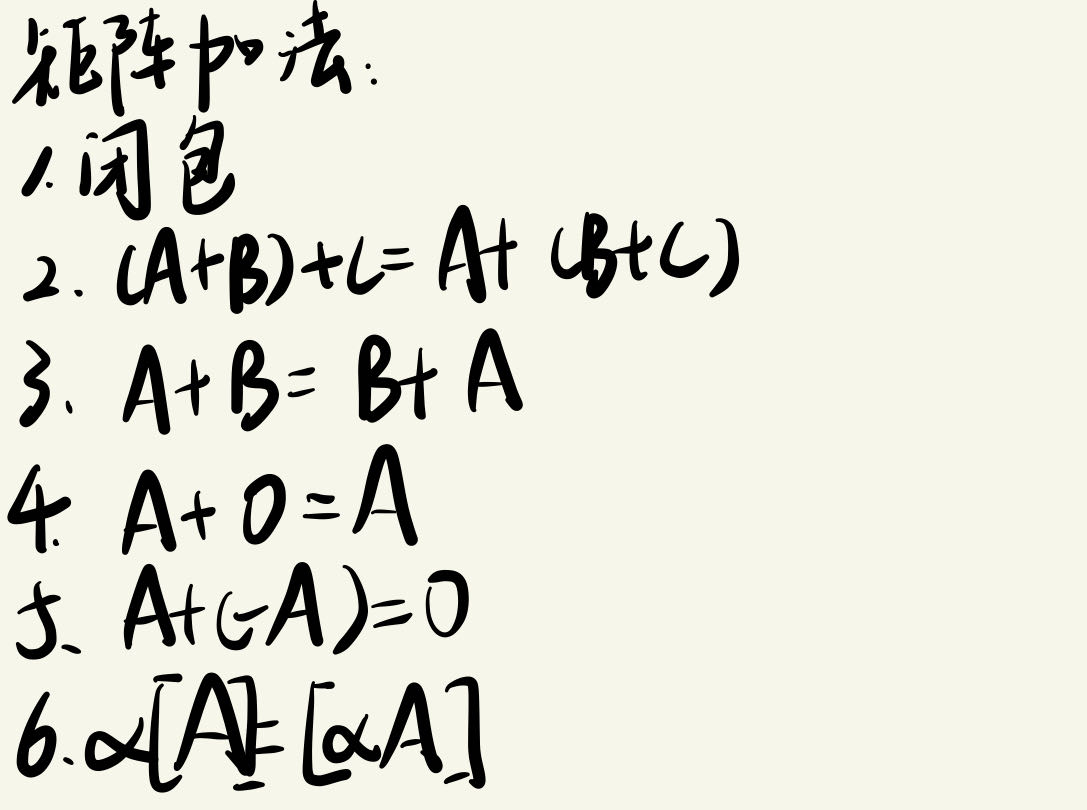 矩阵加法:
1.闭包
2. (A+B)+C= A+ (B+C)
3. A+B= B+ A
4. A+0=A
5、A+(-A)=0
6.α[A]=[αA]